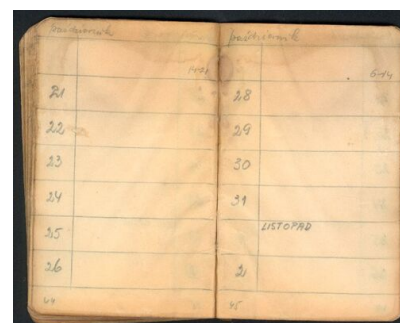 październik
21
22
23
24
25
26
44
październik
28
29
30
31
LISTOPAD
2
45